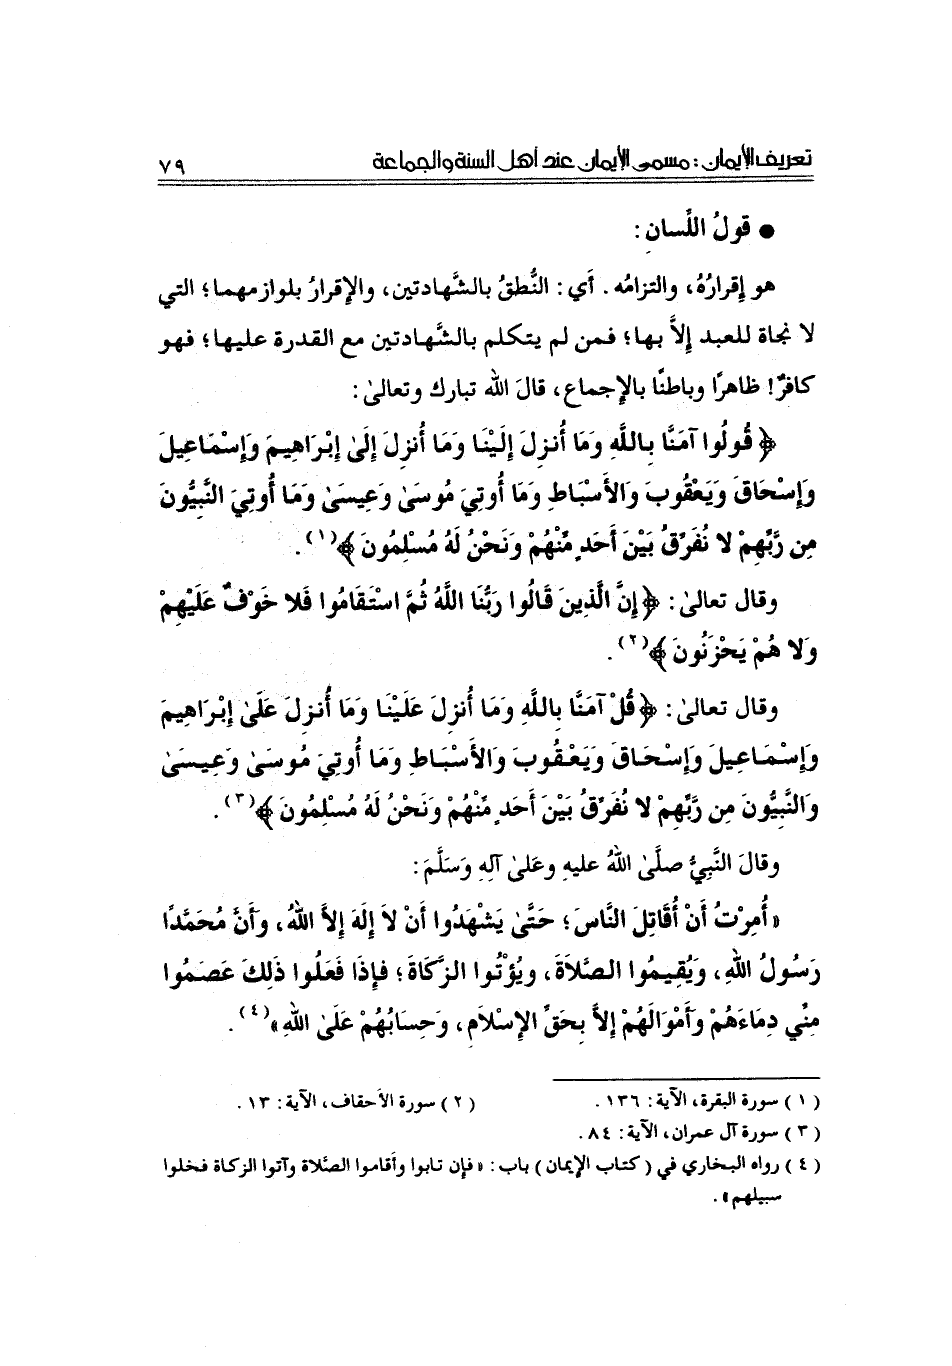 تعريف الإيمان : مسمى الإيمان عند أهل السنة والجماعة ٧٩
● قولُ اللِّسان :
هو إقرارُهُ، والتزامُه . أي : النُّطقُ بالشَّهادتين، والإقرارُ بلوازمهما؛ التي
لا نجاة للعبد إلاَّ بها؛ فمن لم يتكلم بالشَّهادتين مع القدرة عليها؛ فهو
كافرٌ! ظاهرًا وباطنًا بالإجماع، قالَ الله تبارك وتعالىٰ :
﴿ قُولُوا آمَنَّا بِاللَّهِ وَمَا أُنزِلَ إِلَيْنَا وَمَا أُنزِلَ إِلَىٰ إِبْرَاهِيمَ وَإِسْمَاعِيلَ
وَإِسْحَاقَ وَيَعْقُوبَ وَالأَسْبَاطِ وَمَا أُوتِيَ مُوسَىٰ وَعِيسَىٰ وَمَا أُوتِيَ النَّبِيُّونَ
مِن رَّبِّهِمْ لا نُفَرِّقُ بَيْنَ أَحَدٍ مِّنْهُمْ وَنَحْنُ لَهُ مُسْلِمُونَ ﴾(١).
وقال تعالىٰ : ﴿ إِنَّ الَّذِينَ قَالُوا رَبُّنَا اللَّهُ ثُمَّ اسْتَقَامُوا فَلا خَوْفٌ عَلَيْهِمْ
وَلا هُمْ يَحْزَنُونَ ﴾(٢).
وقال تعالىٰ : ﴿ قُلْ آمَنَّا بِاللَّهِ وَمَا أُنزِلَ عَلَيْنَا وَمَا أُنزِلَ عَلَىٰ إِبْرَاهِيمَ
وَإِسْمَاعِيلَ وَإِسْحَاقَ وَيَعْقُوبَ وَالأَسْبَاطِ وَمَا أُوتِيَ مُوسَىٰ وَعِيسَىٰ
وَالنَّبِيُّونَ مِن رَّبِّهِمْ لا نُفَرِّقُ بَيْنَ أَحَدٍ مِّنْهُمْ وَنَحْنُ لَهُ مُسْلِمُونَ ﴾(٣).
وقالَ النَّبِيُّ صلَّىٰ اللهُ عليهِ وعَلىٰ آلِهِ وَسَلَّمَ :
« أُمِرْتُ أَنْ أُقَاتِلَ النَّاسَ؛ حَتَّىٰ يَشْهَدُوا أَنْ لاَ إِلَهَ إِلاَّ اللهُ، وَأَنَّ مُحَمَّدًا
رَسُولُ اللهِ، وَيُقِيمُوا الصَّلاَةَ، ويُؤْتُوا الزَّكَاةَ؛ فإِذَا فَعَلُوا ذَلِكَ عَصَمُوا
مِنِّي دِمَاءَهُمْ وَأَمْوَالَهُمْ إِلاَّ بِحَقِّ الإِسْلاَمِ، وَحِسَابُهُمْ عَلَىٰ اللهِ»(٤).
(١) سورة البقرة، الآية : ١٣٦ . (٢) سورة الأحقاف، الآية : ١٣ .
(٣) سورة آل عمران، الآية : ٨٤ .
(٤) رواه البخاري في ( كتاب الإيمان ) باب : « فإن تابوا وأقاموا الصَّلاة وآتوا الزكاة فخلوا
سبيلهم» .